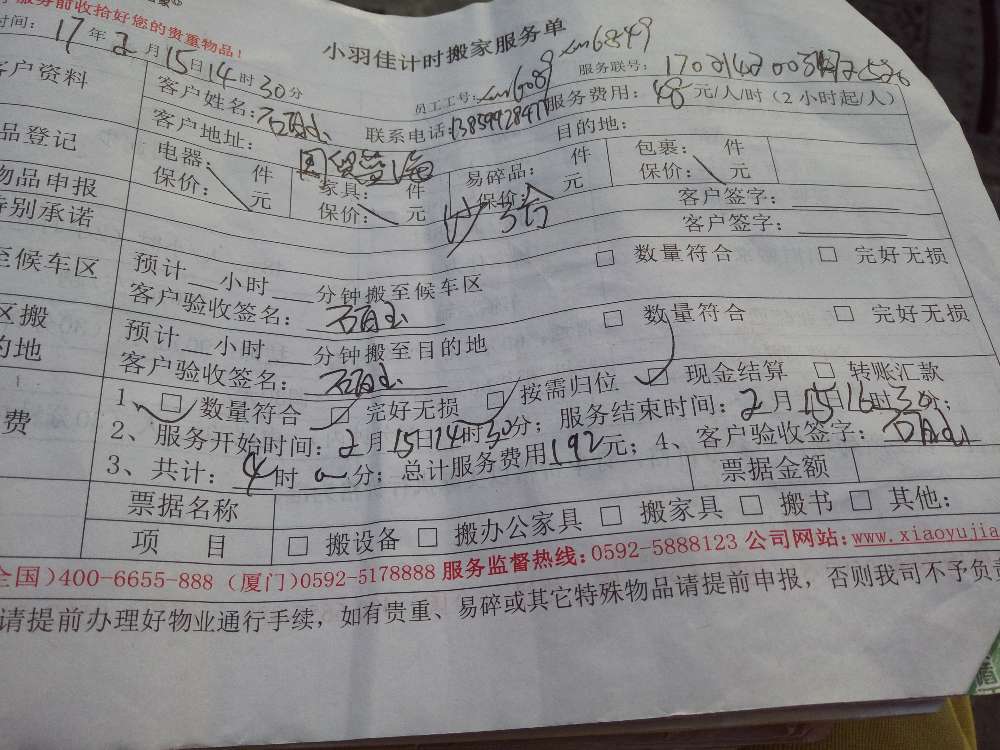 服务前收拾好您的贵重物品！
小羽佳计时搬家服务单
时间：17年2月15日14时30分 员工工号：xm6089 xm6849 服务联号：
客户资料 客户姓名： 联系电话： 服务费用：48元/人/时（2小时起/人）
客户地址：国贸蓝海 目的地：
品登记 电器： 件 家具： 件 易碎品： 件 包裹： 件
保价： 元 保价： 元 保价： 元 保价： 元
物品申报 客户签字：
特别承诺 客户签字：
至候车区 预计 小时 分钟搬至候车区 □ 数量符合 □ 完好无损
客户验收签名：
区搬 预计 小时 分钟搬至目的地 □ 数量符合 □ 完好无损
的地 客户验收签名：
费 1、□ 数量符合 □ 完好无损 □ 按需归位 □ 现金结算 □ 转账汇款
2、服务开始时间：2月15日14时30分；服务结束时间：2月15日16时30分；
3、共计：4时0分；总计服务费用192元；4、客户验收签字：
票据名称 票据金额
项 目 □ 搬设备 □ 搬办公家具 □ 搬家具 □ 搬书 □ 其他：
全国）400-6655-888（厦门）0592-5178888 服务监督热线：0592-5888123 公司网站：www.xiaoyujia
请提前办理好物业通行手续，如有贵重、易碎或其它特殊物品请提前申报，否则我司不予负责